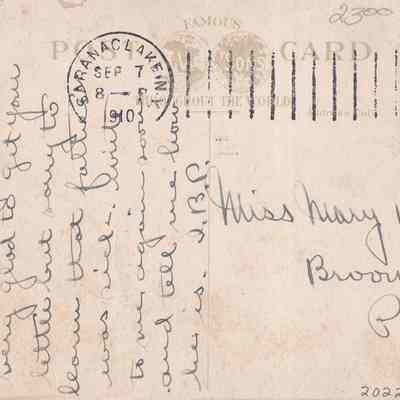 2300
FAMOUS
POST CARD
THROUGHOUT THE WORLD
SARANAC LAKE N
SEP 7
8 —
1910
very glad to get your
letter but sorry to
learn that father
was sick. Write
to me again soon
and tell me how
he is. J.B.P.
Miss Mary
Broom
P
2022